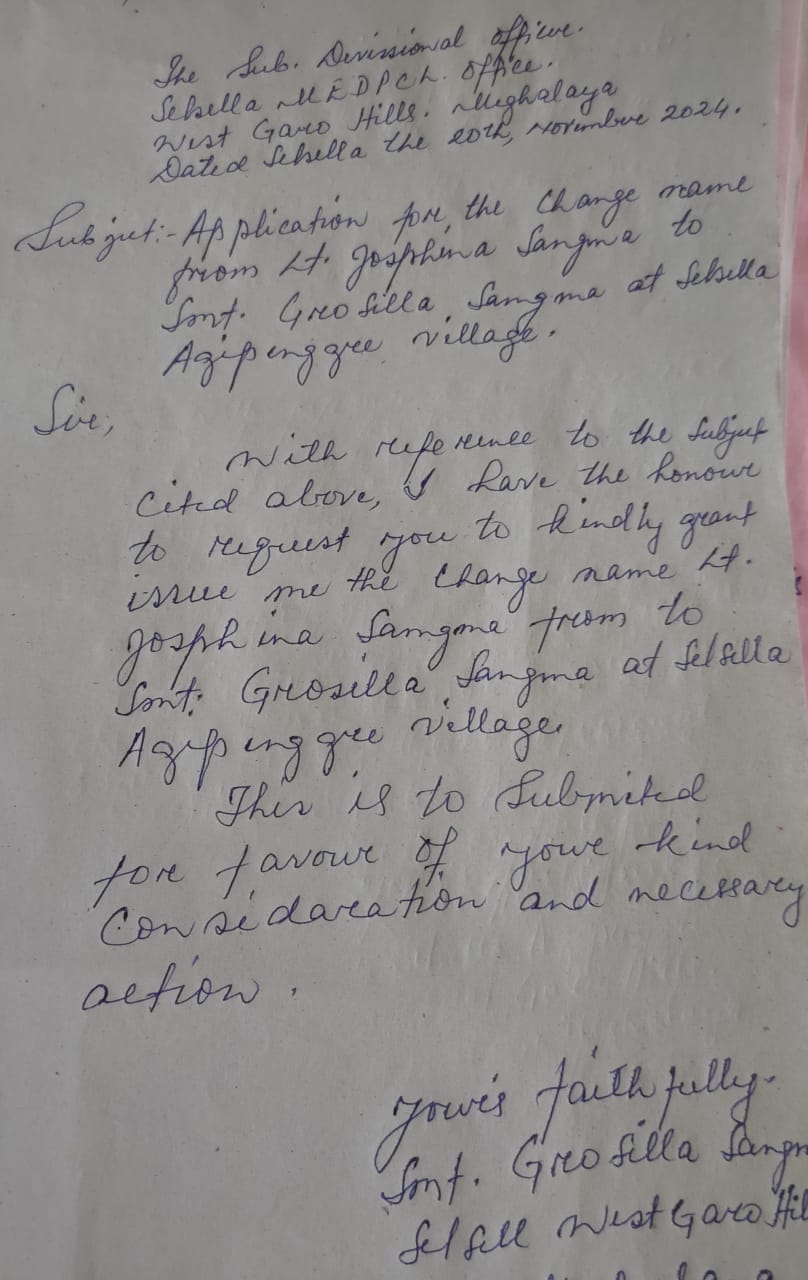 The Sub. Divissional officer.
Selsella MEDPCL. Office.
West Garo Hills. Meghalaya
Dated Selsella the 20th, November 2024.
Subject:- Application for the Change name
from Lt. Josphina Sangma to
Smt. Grosilla Sangma at Selsella
Agipenggre village.
Sir,
With reference to the Subject
Cited above, I have the honour
to request you to kindly grant
issue me the Change name Lt.
Josphina Sangma from to
Smt. Grosilla Sangma at Selsella
Agipenggre village.
This is to Submited
for favour of your kind
Considaration and necessary
action.
Your's faithfully.
Smt. Grosilla Sangm
Selsell West Garo Hil